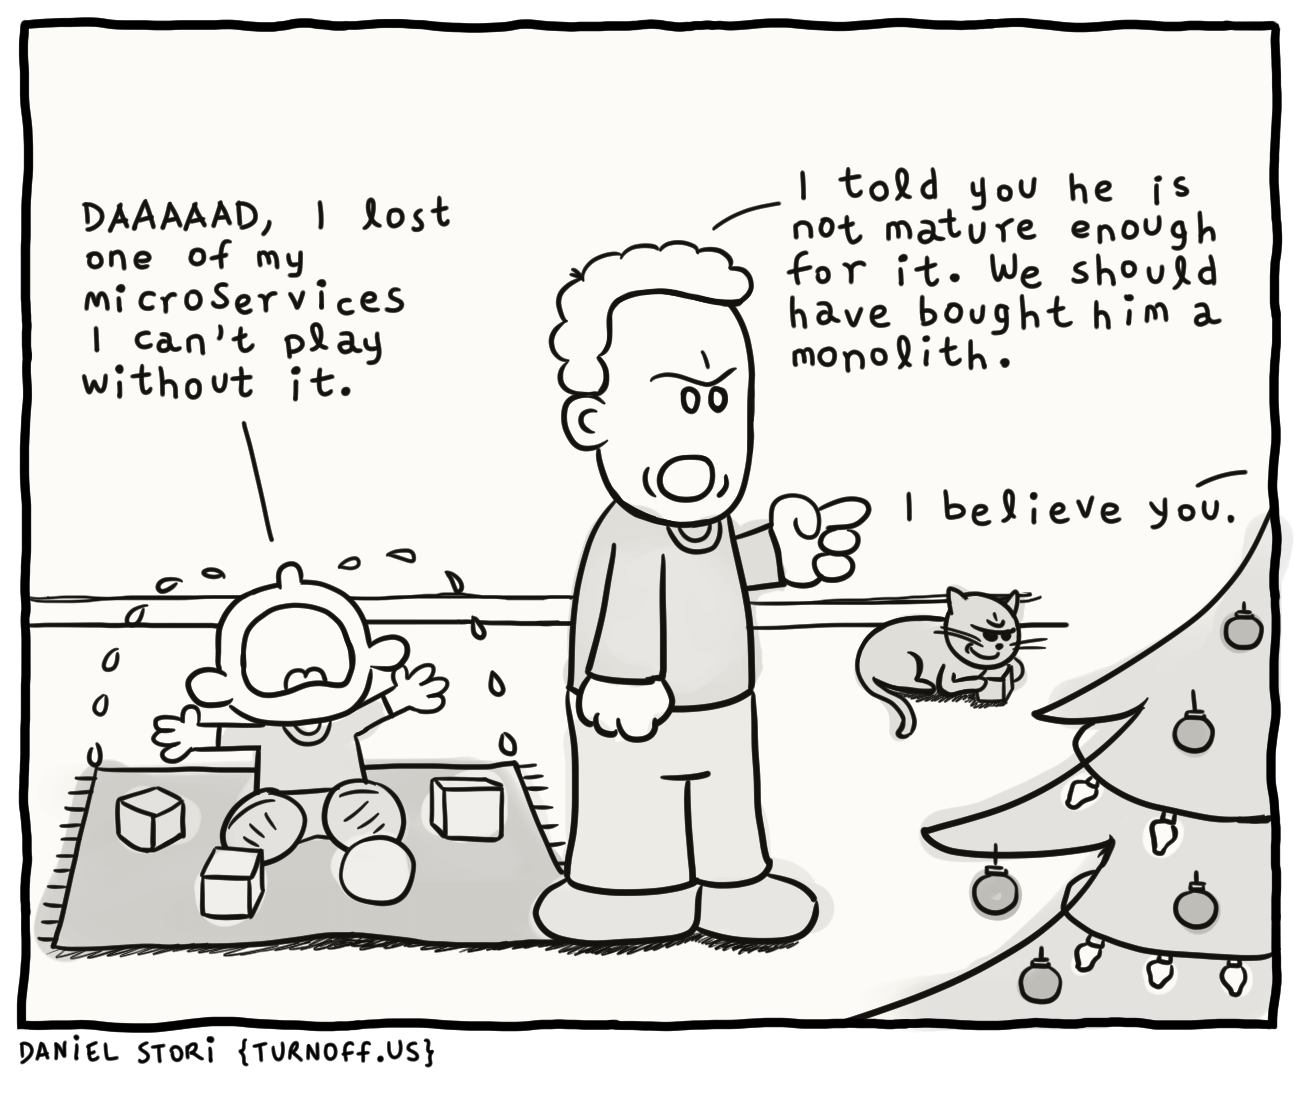 DAAAAAD, I lost
one of my
microservices
I can't play
without it.
I told you he is
not mature enough
for it. We should
have bought him a
monolith.
I believe you.
DANiEL STORi {TURNOFF.US}